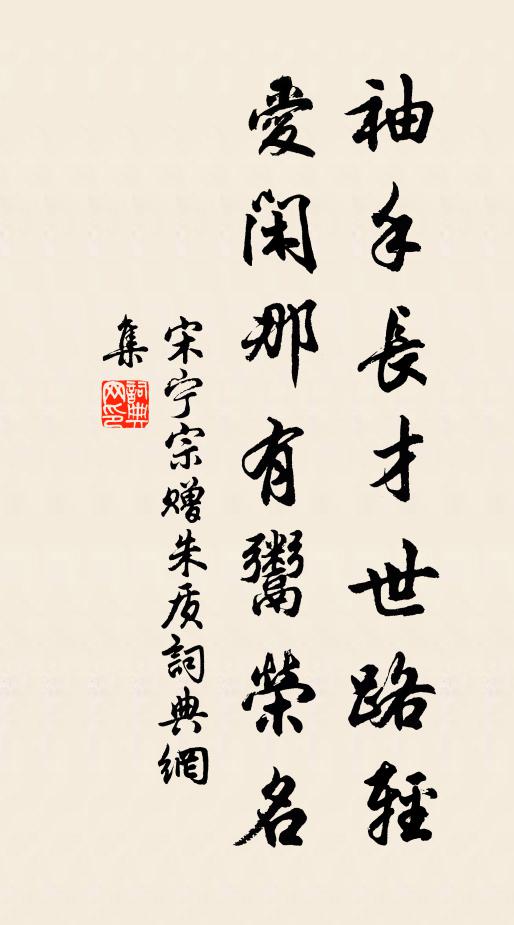 袖手長才世路輕
愛閑那有鬻榮名
宋宁宗赠朱质詞典網
集
詞典网印